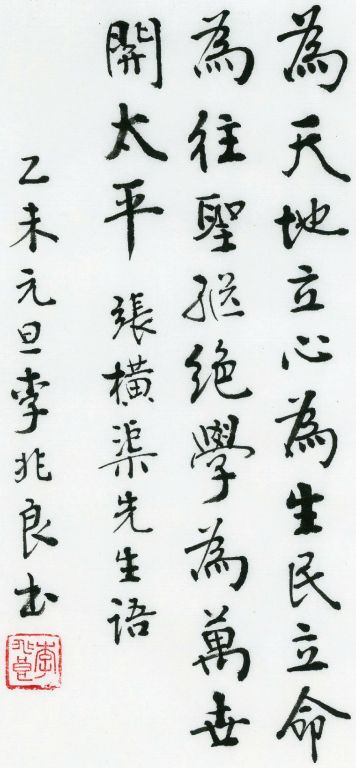 為天地立心為生民立命
為往聖繼絕學為萬世
開太平 張橫渠先生語
乙未元旦李兆良书
李兆良